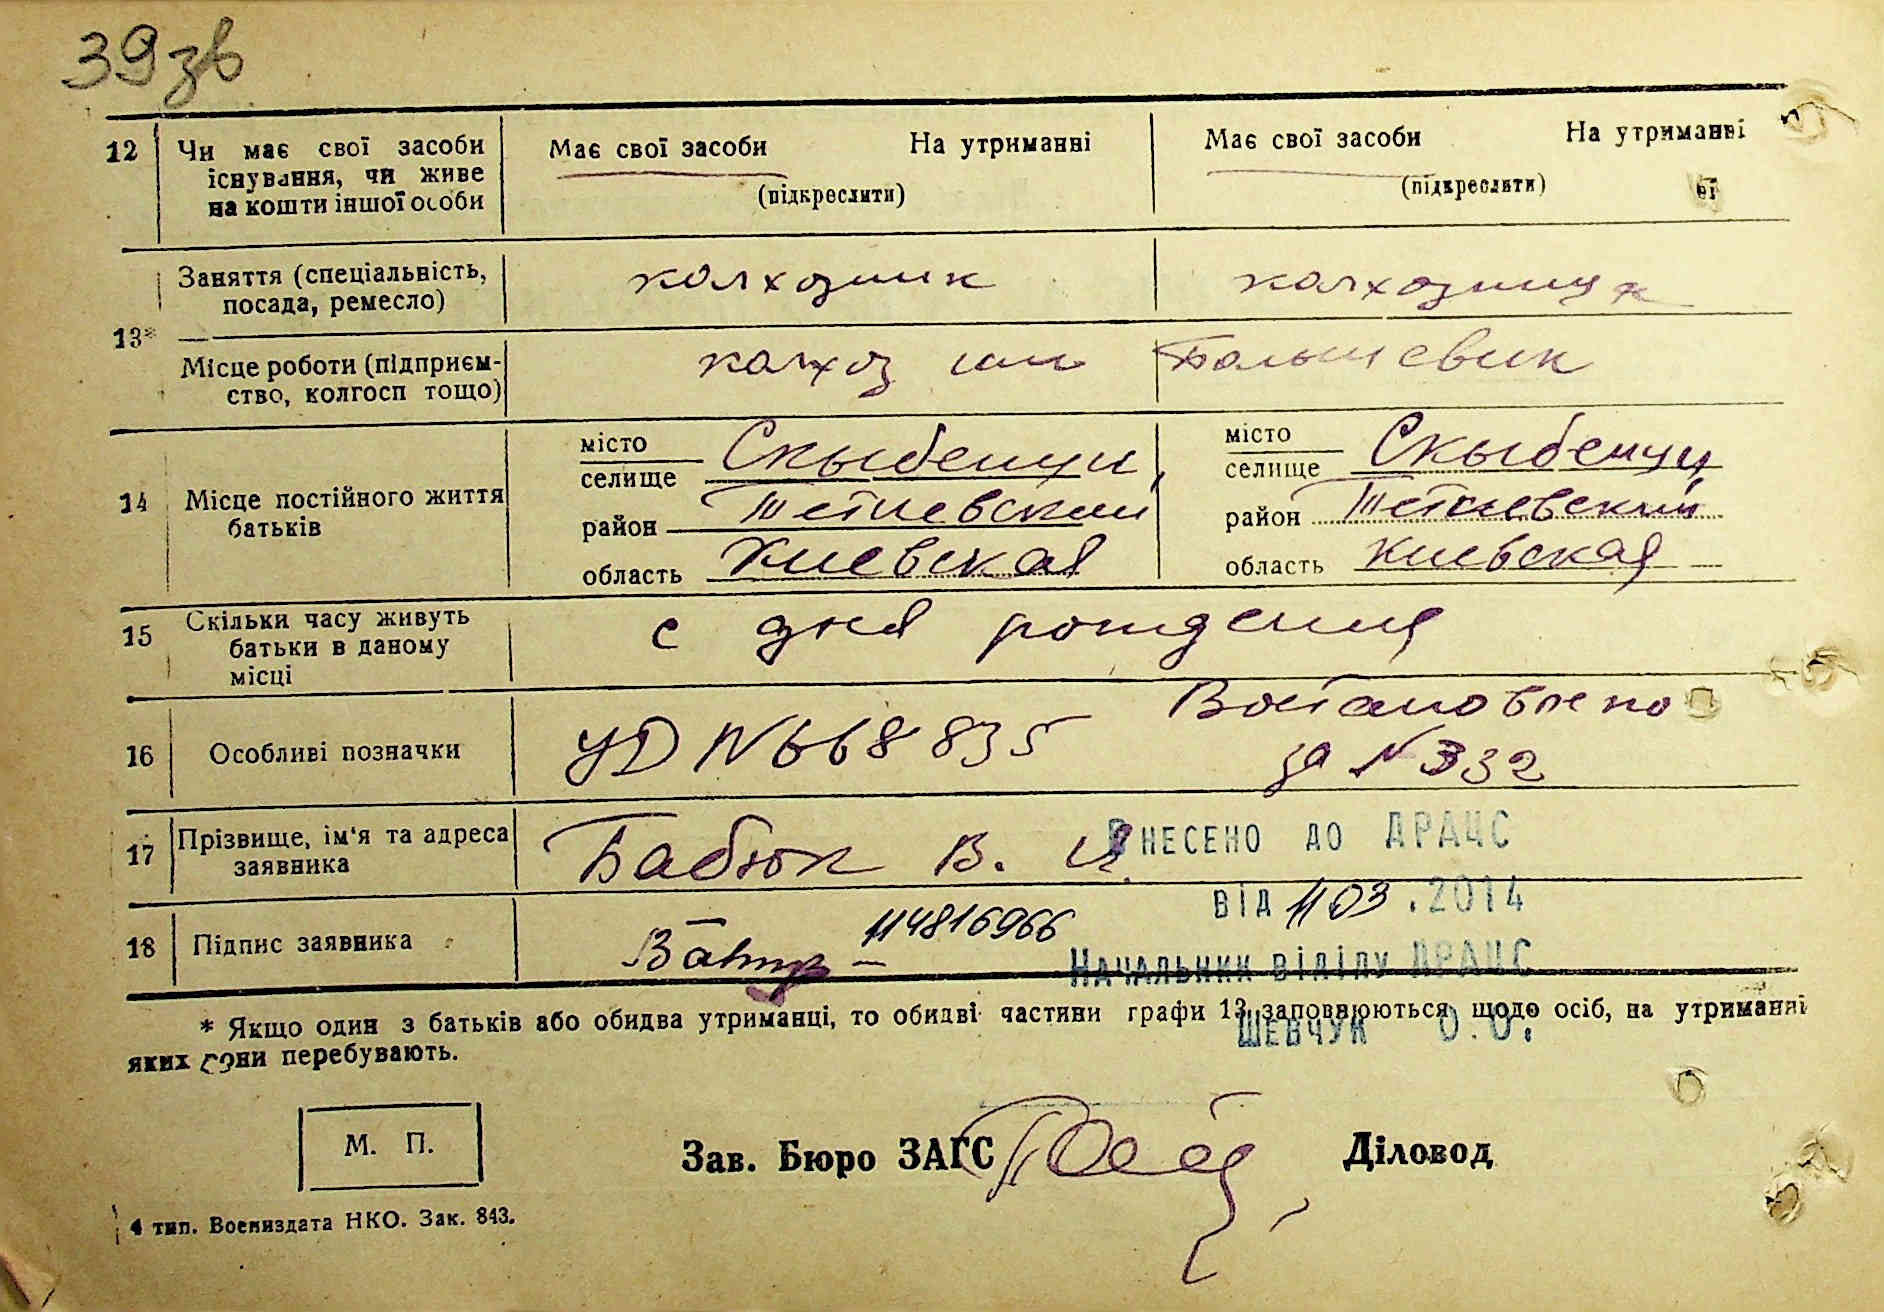 39 зв
12 Чи має свої засоби існування, чи живе на кошти іншої особи
Має свої засоби На утриманні
(підкреслити)
Має свої засоби На утриманні
(підкреслити)
13*
Заняття (спеціальність, посада, ремесло)
колхозник колхозница
Місце роботи (підприємство, колгосп тощо)
колхоз им Большевик
14 Місце постійного життя батьків
місто
селище Скыбенци,
район Тетиевский
область Киевская
місто
селище Скыбенци
район Тетиевский
область Киевская
15 Скільки часу живуть батьки в даному місці
с дня рождения
16 Особливі позначки
УД № 668835 Востановлено
за № 332
17 Прізвище, ім'я та адреса заявника
Бабюк В. И.
ВНЕСЕНО ДО ДРАЦС
від 11 03 .2014
18 Підпис заявника
114816966
Начальник відділу ДРАЦС
Шевчук О.О.
* Якщо один з батьків або обидва утриманці, то обидві частини графи 13 заповнюються щодо осіб, на утриманні
яких вони перебувають.
М. П.
Зав. Бюро ЗАГС Діловод
4 тип. Воениздата НКО. Зак. 843.